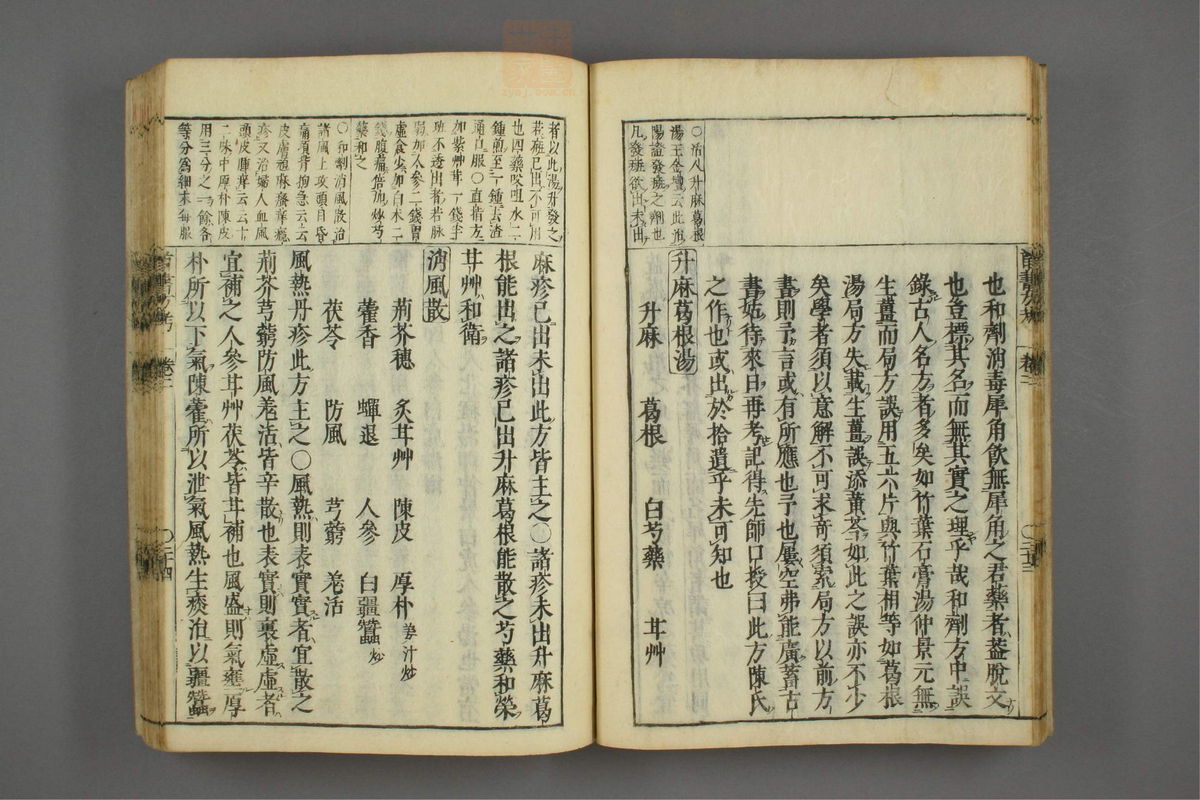 ○活人升麻葛根
湯王金壇云此治
陽證發斑之劑也
凡發斑欲出未出
也和劑消毒犀角飲無犀角之君藥者蓋脫文
也豈標其名而無其實之理乎哉和劑方中誤
錄古人名方者多矣如竹葉石膏湯仲景元無
生薑而局方誤用五六片與竹葉相等如葛根
湯局方失載生薑誤添黃芩如此之誤亦不少
矣學者須以意解不可求奇須索局方以前方
書則予言或有所應也予也屢空弗能廣蓄古
書姑待來日再考記得先師口授曰此方陳氏
之作也或出於拾遺乎未可知也
升麻葛根湯
升麻 葛根 白芍藥 甘艸
者以此湯升發之
若斑已出不可用
也四藥㕮咀水二
鍾煎至一鍾去渣
通口服○直指方
加紫艸茸一錢半
斑不透出者若脉
弱加人參二錢胃
虛食少加白朮二
錢腹痛倍加炒芍
藥和之
○和劑消風散治
諸風上攻頭目昏
痛項背拘急云云
皮膚頑麻瘙痒癮
疹又治婦人血風
頭皮腫痒云云十
二味中厚朴陳皮
用三分之一餘各
等分爲細末每服
麻疹已出未出此方皆主之○諸疹未出升麻葛
根能出之諸疹已出升麻葛根能散之芍藥和榮
甘艸和衛
消風散
荊芥穗 炙甘艸 陳皮 厚朴姜汁炒
藿香 蟬退 人參 白殭蠶炒
茯苓 防風 芎藭 羗活
風熱丹疹此方主之○風熱則表實實者宜散之
荊芥芎藭防風羗活皆辛散也表實則裏虛虛者
宜補之人參甘艸茯苓皆甘補也風盛則氣壅厚
朴所以下氣陳藿所以泄氣風熱生痰治以殭蠶